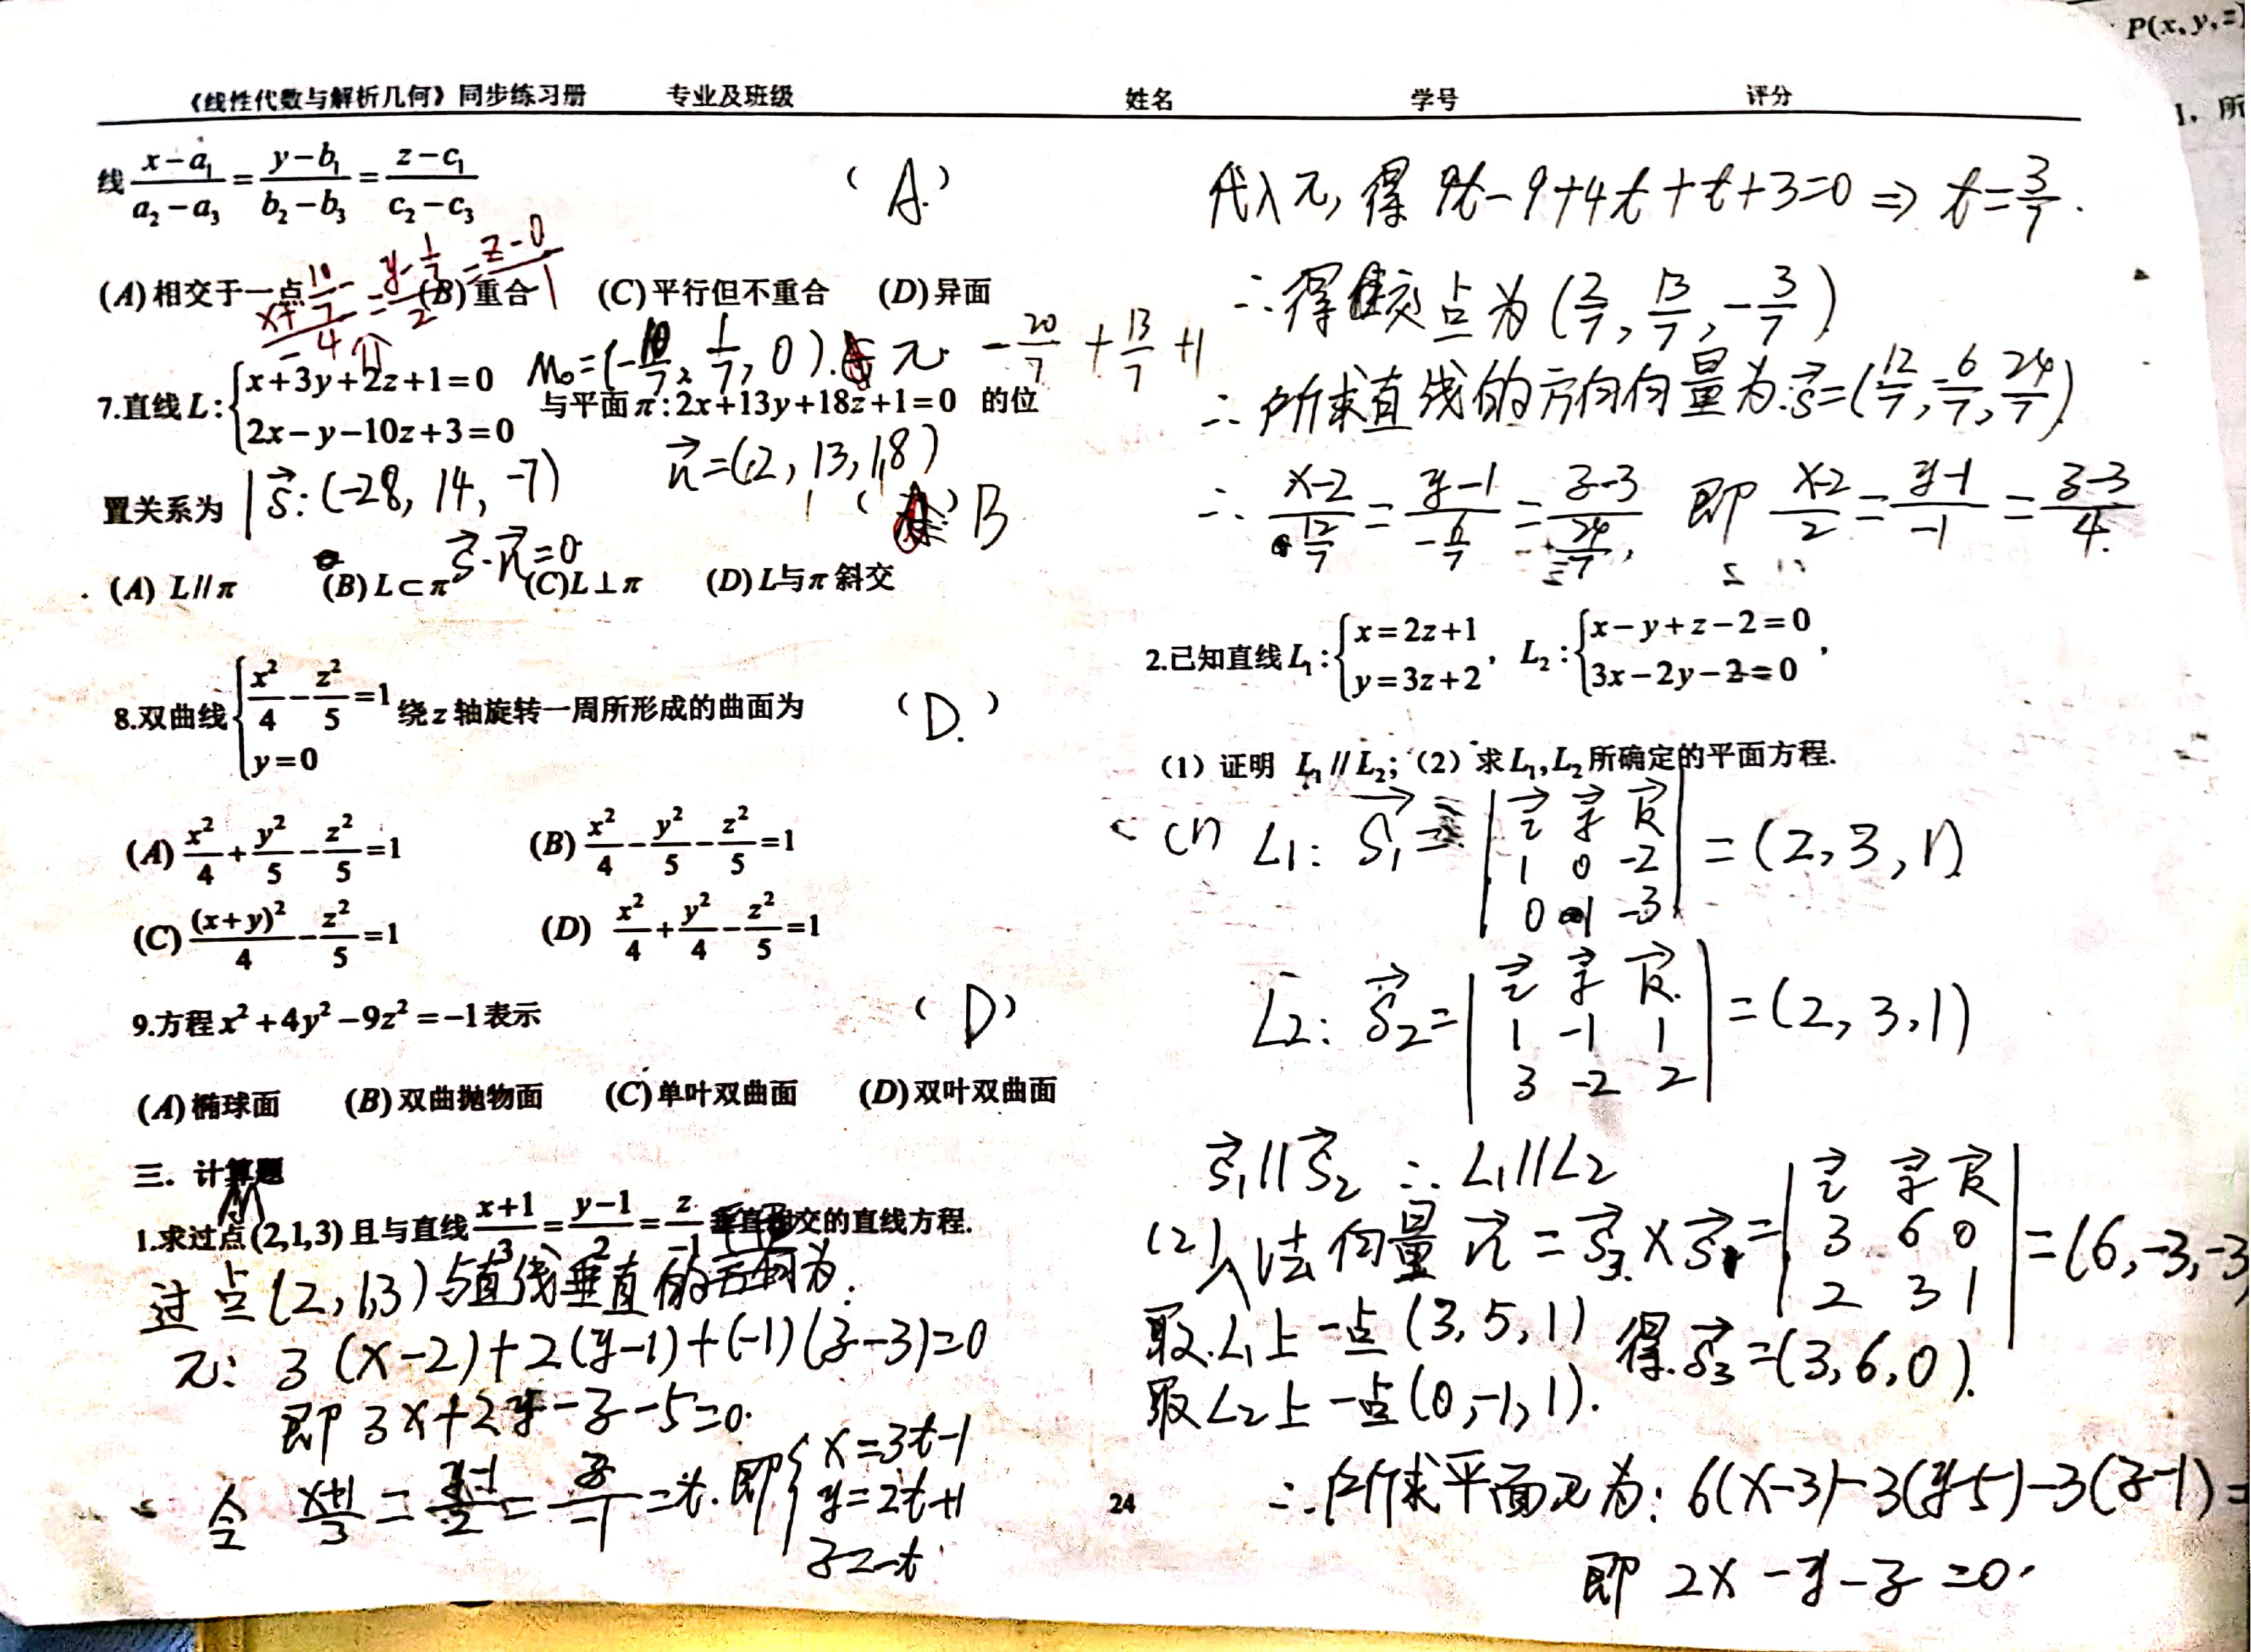 P(x,y,z)
《线性代数与解析几何》同步练习册 专业及班级 姓名 学号 评分
1, 所
线 (x-a₁)/(a₂-a₃) = (y-b₁)/(b₂-b₃) = (z-c₁)/(c₂-c₃) (A.)
(A)相交于一点 (B)重合 (C)平行但不重合 (D)异面
(x+10/7)/-4 = (y-1/7)/2 = (z-0)/1
M₀=(-10/7, 1/7, 0). π -20/7 + 13/7 + 1
7.直线L:{x+3y+2z+1=0 2x-y-10z+3=0 与平面π:2x+13y+18z+1=0 的位
s⃗:(-28, 14, -7) n⃗=(2, 13, 18)
置关系为 ( ) B
s⃗·n⃗=0
(A) L//π (B) L⊂π (C)L⊥π (D)L与π斜交
8.双曲线{x²/4 - z²/5 = 1 y=0 绕z轴旋转一周所形成的曲面为 (D.)
(A) x²/4 + y²/5 - z²/5 = 1 (B) x²/4 - y²/5 - z²/5 = 1
(C) (x+y)²/4 - z²/5 = 1 (D) x²/4 + y²/4 - z²/5 = 1
9.方程x²+4y²-9z²=-1表示 (D)
(A)椭球面 (B)双曲抛物面 (C)单叶双曲面 (D)双叶双曲面
三. 计算题
1.求过点(2,1,3)且与直线(x+1)/3 = (y-1)/2 = z/-1 垂直相交的直线方程.
过点(2,1,3)与直线垂直的为:
π: 3(x-2)+2(y-1)+(-1)(z-3)=0
即 3x+2y-z-5=0.
令 (x+1)/3 = (y-1)/2 = z/-1 = t. 即{x=3t-1 y=2t+1 z=-t.
代入π, 得 9t-9+4t+t+3=0 ⇒ t=3/7.
∴得交点为(2/7, 13/7, -3/7)
∴所求直线的方向向量为:s⃗=(12/7, -6/7, 24/7)
∴ (x-2)/(12/7) = (y-1)/(-6/7) = (z-3)/(24/7), 即 (x-2)/2 = (y-1)/-1 = (z-3)/4.
2.已知直线L₁:{x=2z+1 y=3z+2, L₂:{x-y+z-2=0 3x-2y-2=0,
(1)证明 L₁//L₂;(2)求L₁,L₂所确定的平面方程.
(1) L1: s⃗₁= |i⃗ j⃗ k⃗; 1 0 -2; 0 1 -3| = (2,3,1)
L2: s⃗₂= |i⃗ j⃗ k⃗; 1 -1 1; 3 -2 2| = (2,3,1)
s⃗₁//s⃗₂ ∴ L₁//L₂
(2) 法向量 n⃗ = s⃗₃×s⃗₁ = |i⃗ j⃗ k⃗; 3 6 0; 2 3 1| = (6,-3,-3
取L₁上一点(3,5,1) 得s⃗₃=(3,6,0).
取L₂上一点(0,-1,1).
∴所求平面π为: 6(x-3)-3(y-5)-3(z-1)=
即 2x-y-z=0.
24